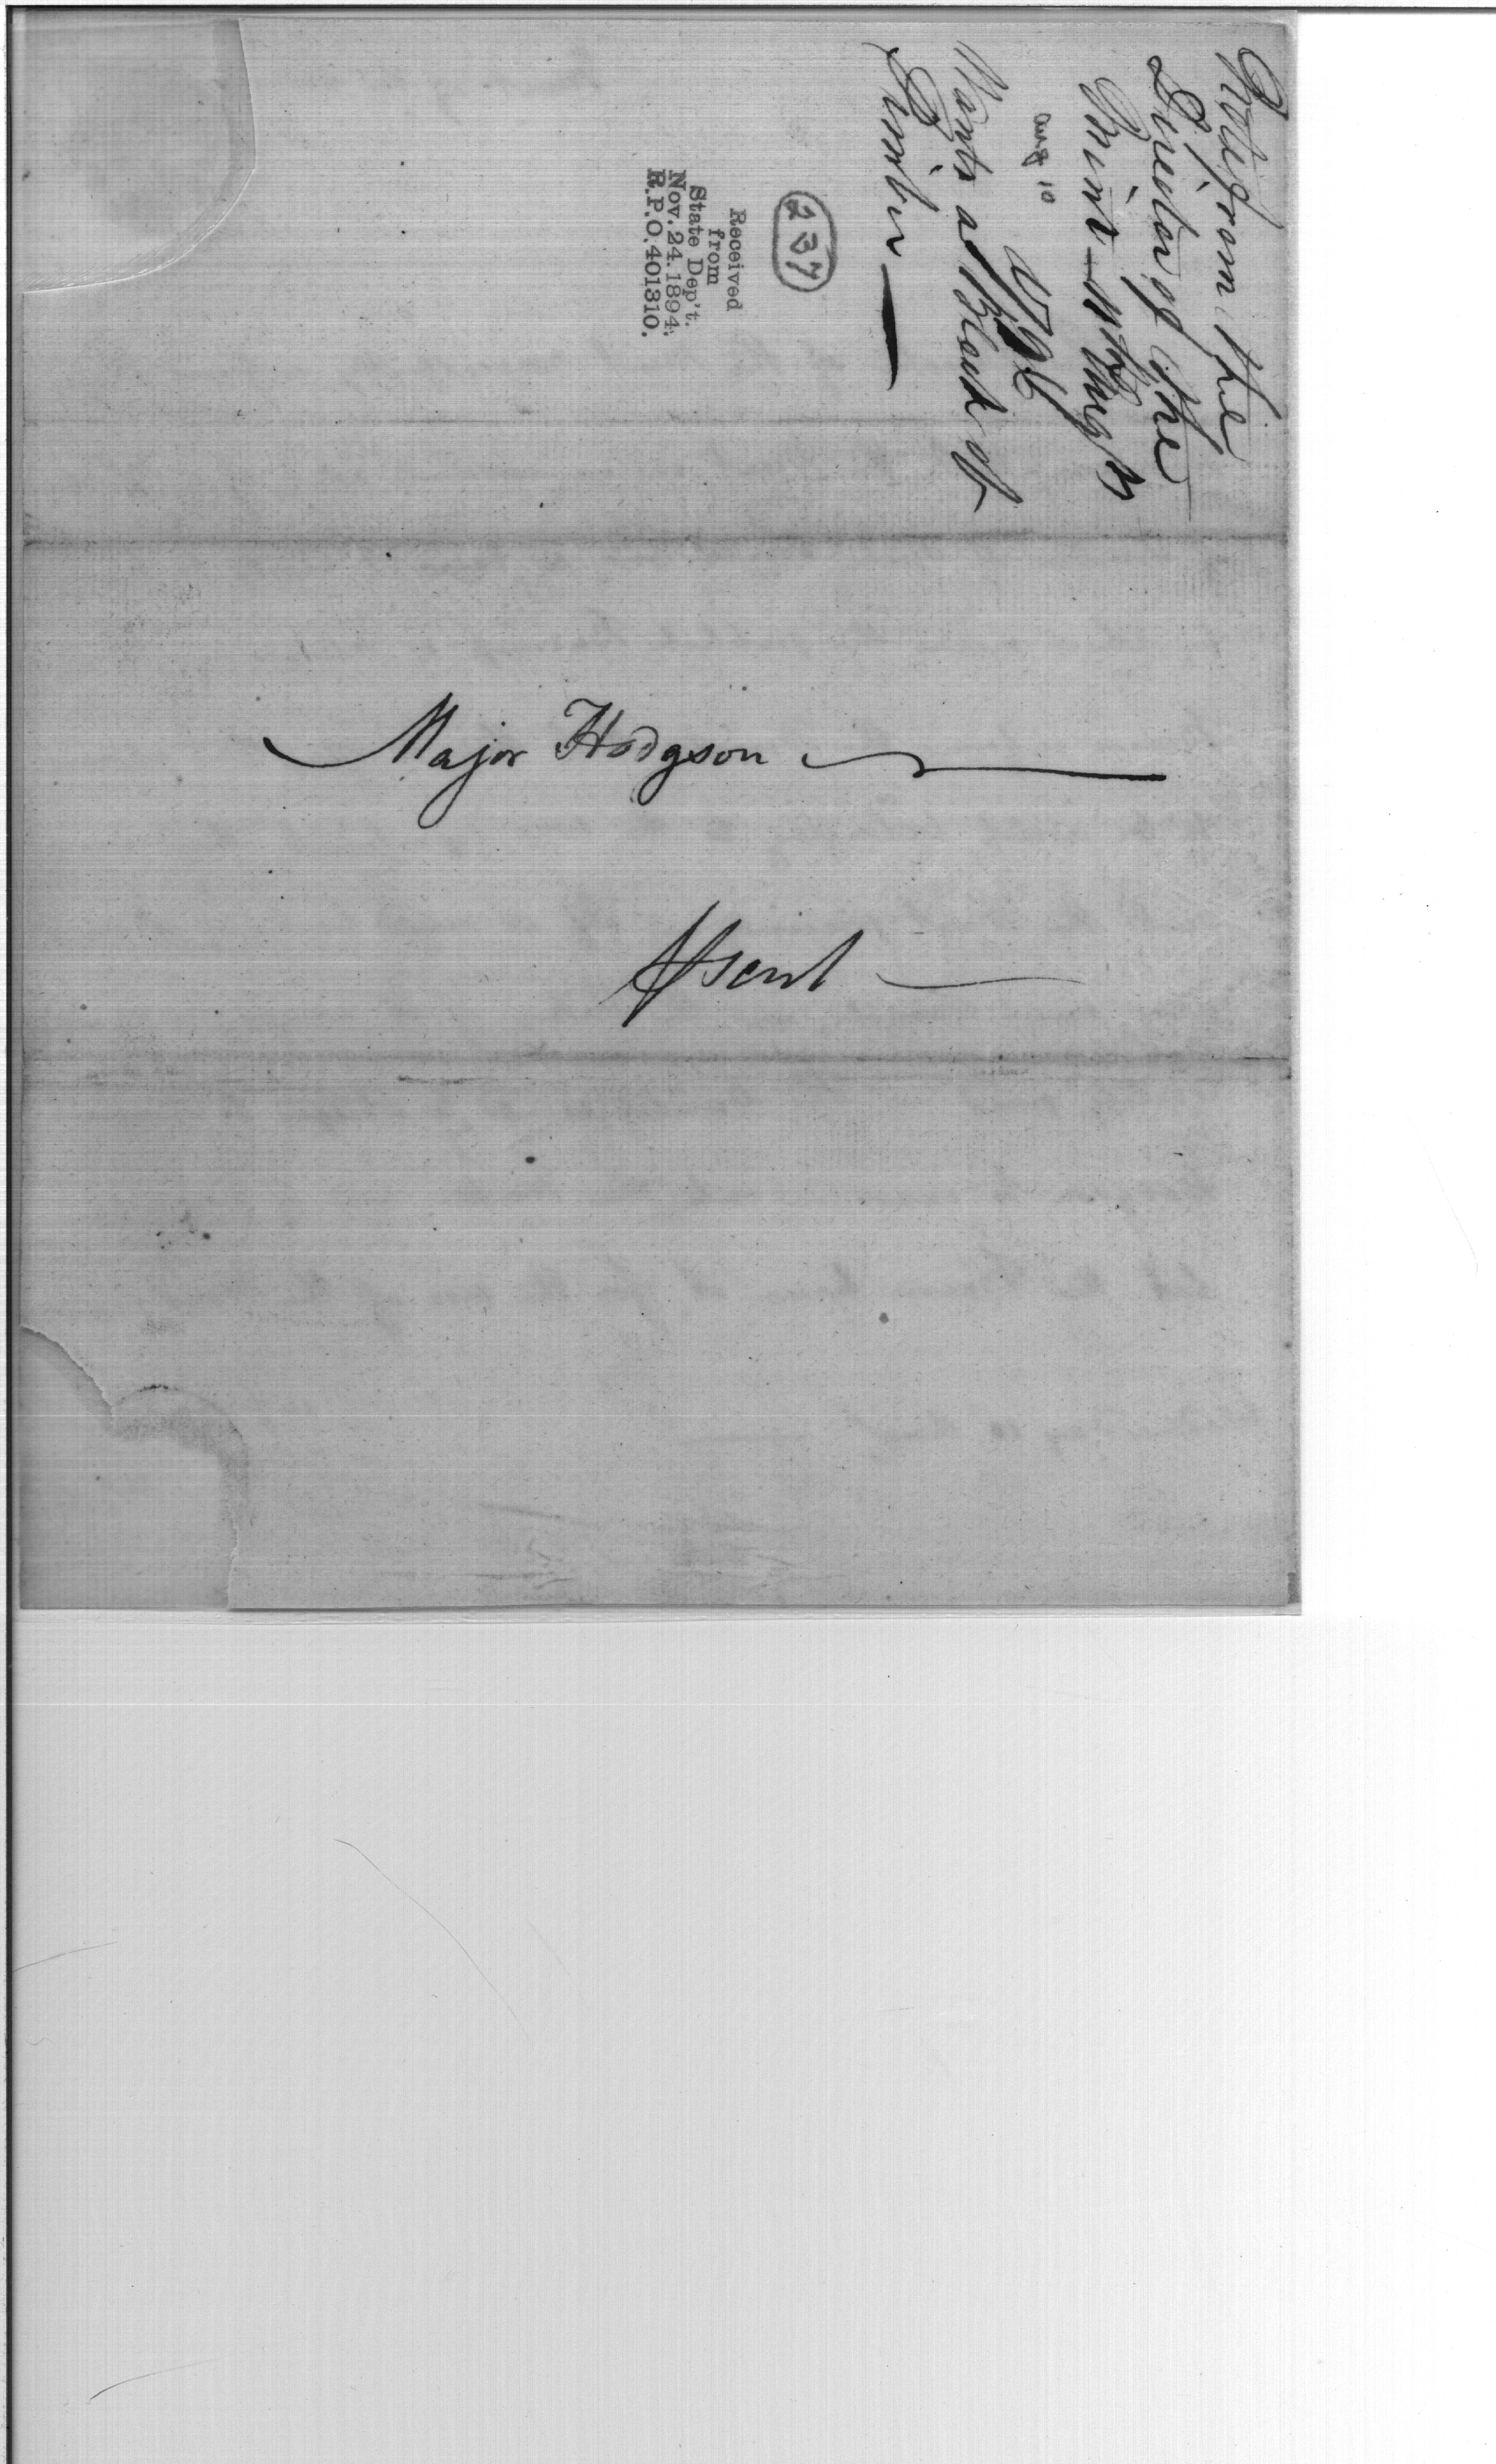 Note from the
Director of the
Mint Augt
aug 10
1796
Wants a Block of
Timber
237
Received
from
State Dep't.
Nov. 24. 1894.
R.P.O. 401310.
Major Hodgson